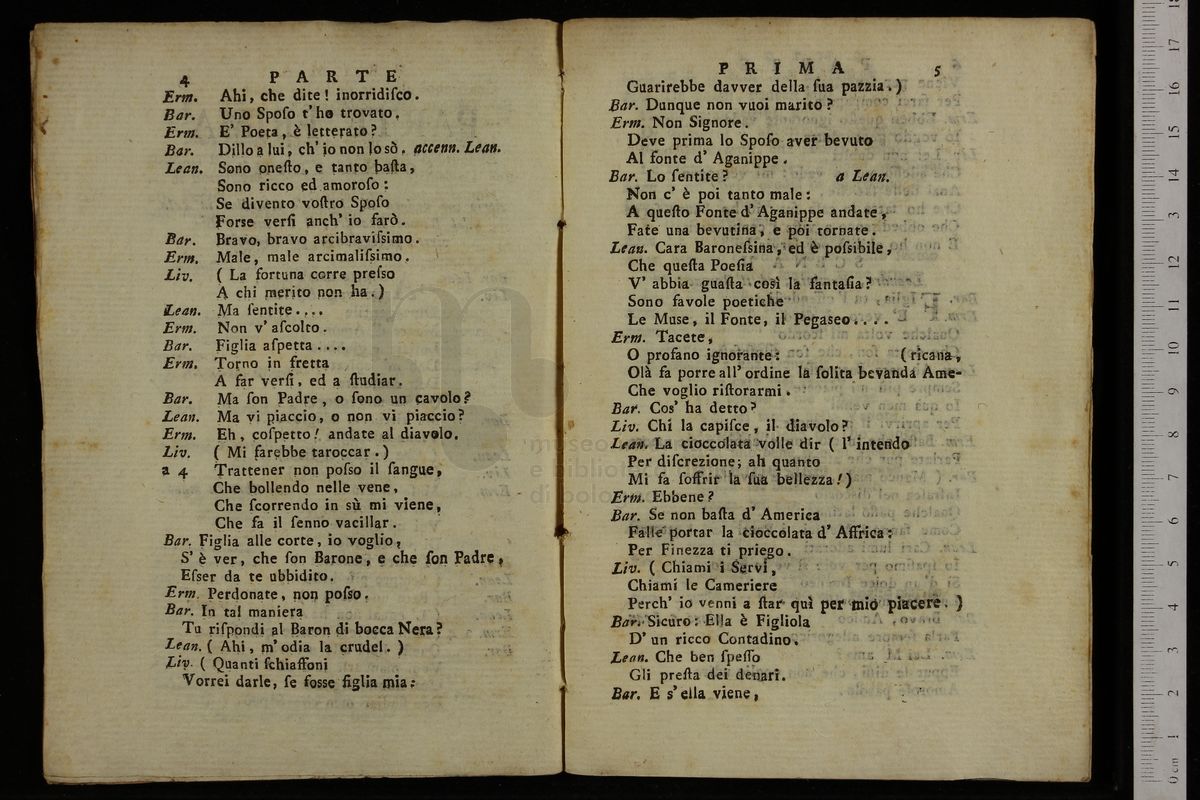 4 PARTE
Erm. Ahi, che dite! inorridiſco.
Bar. Uno Spoſo t'ho trovato.
Erm. E' Poeta, è letterato?
Bar. Dillo a lui, ch' io non lo sò. accenn. Lean.
Lean. Sono oneſto, e tanto baſta,
Sono ricco ed amoroſo:
Se divento voſtro Spoſo
Forse verſi anch' io farò.
Bar. Bravo, bravo arcibraviſsimo.
Erm. Male, male arcimaliſsimo.
Liv. ( La fortuna corre preſso
A chi merito non ha.)
Lean. Ma ſentite....
Erm. Non v' aſcolto.
Bar. Figlia aſpetta....
Erm. Torno in fretta
A far verſi, ed a ſtudiar.
Bar. Ma ſon Padre, o ſono un cavolo?
Lean. Ma vi piaccio, o non vi piaccio?
Erm. Eh, coſpetto! andate al diavolo.
Liv. ( Mi farebbe taroccar.)
a 4 Trattener non poſso il ſangue,
Che bollendo nelle vene,
Che ſcorrendo in sù mi viene,
Che fa il ſenno vacillar.
Bar. Figlia alle corte, io voglio,
S' è ver, che ſon Barone, e che ſon Padre,
Eſser da te ubbidito.
Erm. Perdonate, non poſso.
Bar. In tal maniera
Tu riſpondi al Baron di bocca Nera?
Lean. ( Ahi, m' odia la crudel. )
Liv. ( Quanti ſchiaffoni
Vorrei darle, ſe fosse figlia mia:
PRIMA 5
Guarirebbe davver della ſua pazzia.)
Bar. Dunque non vuoi marito?
Erm. Non Signore.
Deve prima lo Spoſo aver bevuto
Al fonte d' Aganippe.
Bar. Lo ſentite? a Lean.
Non c' è poi tanto male:
A queſto Fonte d' Aganippe andate,
Fate una bevutina, e poi tornate.
Lean. Cara Baroneſsina, ed è poſsibile,
Che queſta Poeſia
V' abbia guaſta così la fantaſia?
Sono favole poetiche
Le Muse, il Fonte, il Pegaseo....
Erm. Tacete,
O profano ignorante: (ricana,
Olà fa porre all' ordine la ſolita bevanda Ame-
Che voglio riſtorarmi.
Bar. Cos' ha detto?
Liv. Chi la capiſce, il diavolo?
Lean. La cioccolata volle dir ( l' intendo
Per diſcrezione; ah quanto
Mi fa ſoffrir la ſua bellezza!)
Erm. Ebbene?
Bar. Se non baſta d' America
Falle portar la cioccolata d' Affrica:
Per Finezza ti priego.
Liv. ( Chiami i Servi,
Chiami le Cameriere
Perch' io venni a ſtar quì per mio piacere. )
Bar. Sicuro: Ella è Figliola
D' un ricco Contadino.
Lean. Che ben ſpeſſo
Gli preſta dei denari.
Bar. E s' ella viene,